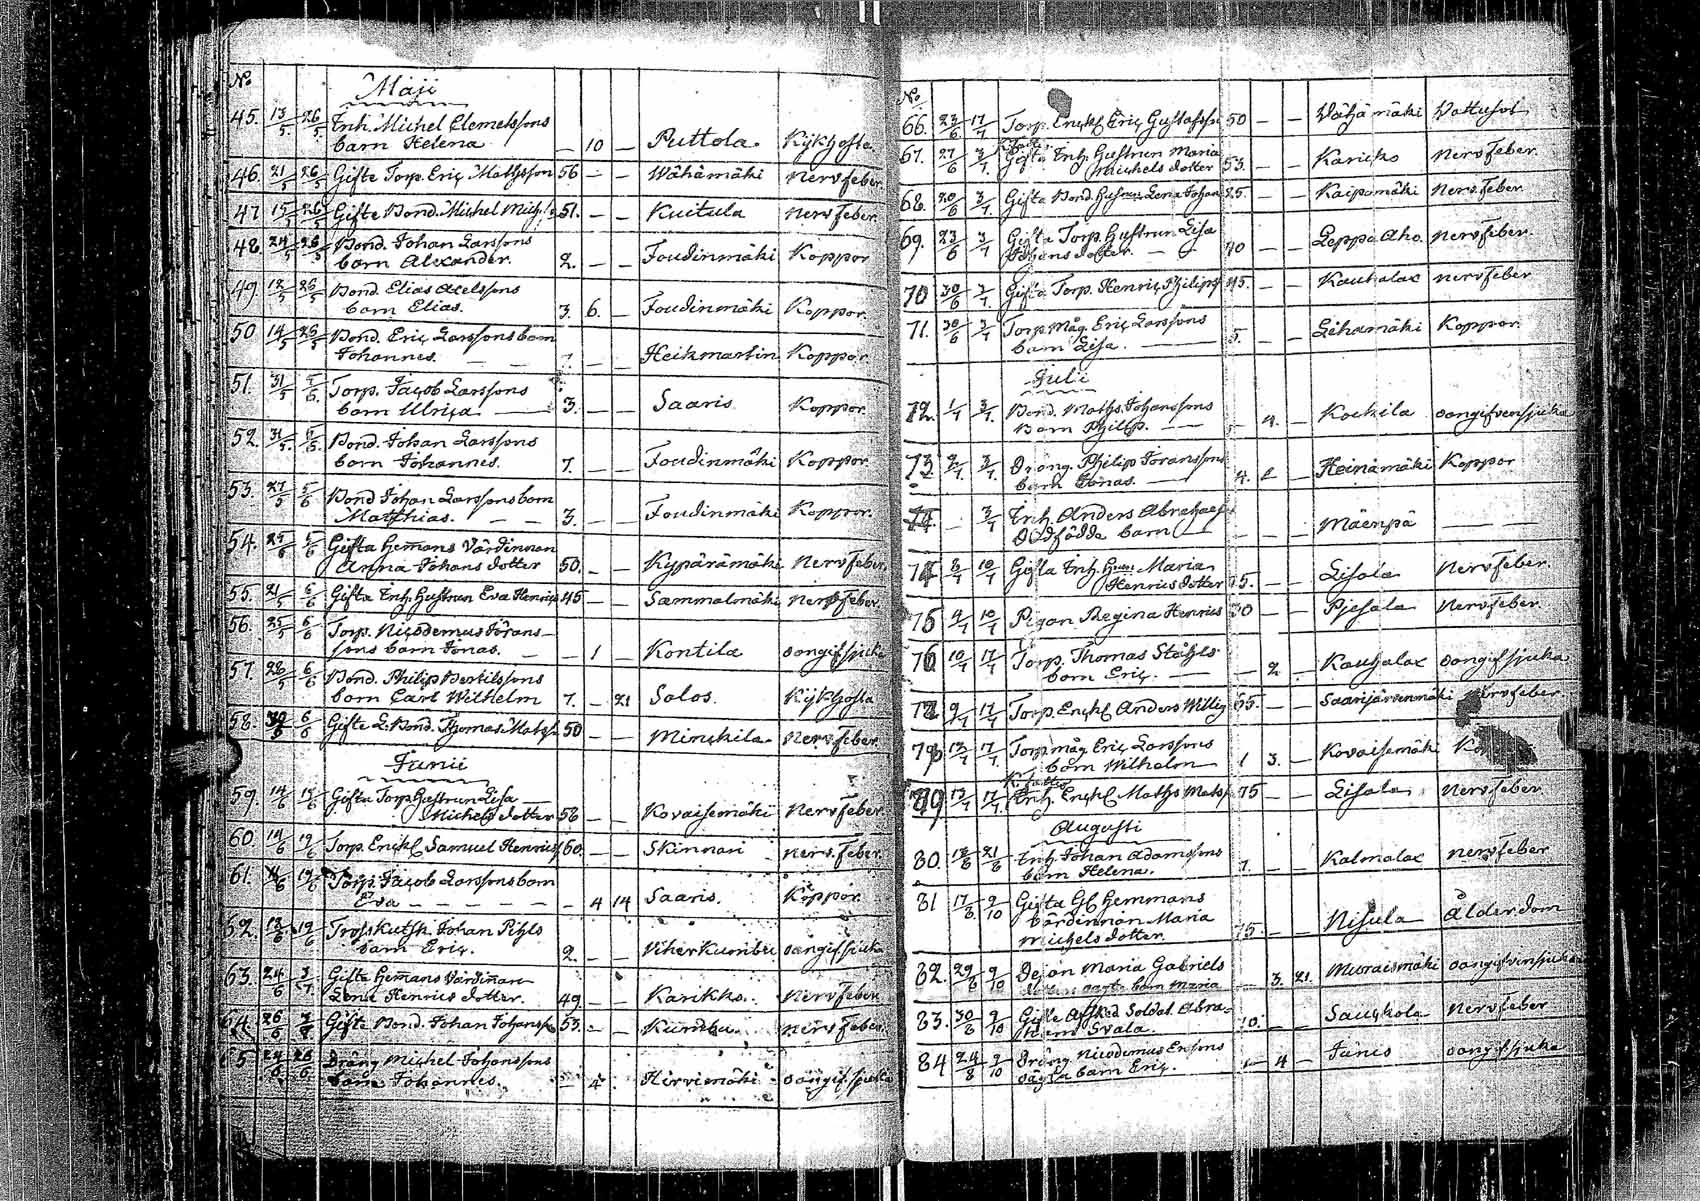 No
Maji
45. 13/5 26/5 Inh. Michel Clemetssons
barn Helena — 10 — Puttola Kikhosta
46. 21/5 26/5 Gifte Torp. Eriç Mathsson 56 — — Wähämäki Nervfeber
47 15/5 26/5 Gifte Bond. Michel Mich. 51. — — Kuitula Nervfeber
48. 24/5 26/5 Bond. Johan Larssons
barn Alexander. 2. — — Foudinmäki Koppor
49. 12/5 26/5 Bond. Elias Axelssons
barn Elias. 3. 6. — Foudinmäki Koppor.
50 14/5 26/5 Bond. Eriç Larssons barn
Johannes. — — — Heikmartin Koppor.
51. 31/5 5/6 Torp. Jacob Larssons
barn Ulriça — 3. — — Saaris Koppor.
52. 31/5 5/6 Bond. Johan Larssons
barn Johannes. 7. — — Foudinmäki Koppor.
53. 27/5 5/6 Bond Johan Larssons barn
Matthias. — — 3. — — Foudinmäki Koppor.
54. Gifta Hemans Värdinnan
Anna Johans dotter 50. — — Kypärämäki Nervfeber
55. 21/5 6/6 Gifta Inh. Hustrun Eva Henrics 45 — — Sammalmäki Nervfeber.
56. 25/5 6/6 Torp. Nicodemus Jörans-
sons barn Jonas. — — 1 — Kontila oangifsjuka
57. 28/5 6/6 Bond. Philip Bertilssons
barn Carl Wilhelm 7. — 21 Solos. Kikhosta
58. 6/6 Gifte L. Bond. Thomas Matss. 50 — — Minçkila Nervfeber.
Junii
59. 14/6 Gifta Torp. Hustrun Lisa —
Michels dotter 58 — — Kovaisemäki Nervfeber.
60. 14/6 19/6 Torp. Ençkl. Samuel Henrics. 60. — — Skinnari Nerv. feber.
61. 19/6 Torp. Jacob Larssons barn
Eva — — — — 4 14 Saaris. Koppor.
62. 13/6 19/6 Trosskutsk. Johan Pihls
barn Eriç. 2. — — Viherkumbu oangifsjuka
63. 24/6 3/7. Gifta Hemans Värdinan
Lena Henrics dotter. 49. — — Karikko. Nervfeber
64. 26/6 Gifte Bond. Johan Johanss. 53. — — Kumbu. Nervfeber.
65 Dräng Michel Johanssons
barn Johannes. — 4 Hirvimäki oangif. sjuka
No
66. 23/6 17/7 Torp. Ençkl Eriç Gustafsson 50 — — Vähämäki Vattusot
67. 27/6 3/7 Gifta Inh. Hustrun Maria
Michels dotter 53. — — Karicko Nervfeber.
68. 20/6 3/7. Gifta Bond. Hustrun Lena Johan 25. — — Kaipomäki Nerv. feber.
69. 23/6 3/7 Gifta Torp. Hustrun Lisa
Johans dotter. — 70 — — Leppä Aho. Nervfeber.
70 30/6 3/7. Gifta Torp. Henriç Philips 45. — — Kauhalax Nervfeber
71. 30/6 3/7 Torp. måg. Eriç Larssons
barn Lisa. — 5. — — Lihamäki Koppor.
Julii
72. 1/7 3/7. Bond. Maths Johanssons
Barn Philip. — — 4. — Kockila oangifvensjuka
73 2/7 3/7 Dräng. Philip Joranssons
barn Jonas. — 4. — Heinämäki Koppor
74. — 3/7 Inh. Anders Abrahams
Dödfödda barn — — — — Mäenpä —
74 8/7 10/7 Gifta Inh. Hrun Maria
Henrics dotter 75. — — Lisola Nervfeber.
75 9/7 10/7 Pigan Regina Henrics 30 — — Pjesala Nervfeber.
76 10/7 17/7 Torp. Thomas Ståhls
barn Eriç. — — 2. — Kauhalax oangifsjuka
77 9/7 17/7 Torp. Enckl Anders Willig 65. — — Saarijärvenmäki Nervfeber
78 13/7 17/7 Torp. måg. Eriç Larssons
barn Wilhelm — 1 3. — Kovaisemäki
79 13/7 17/7 Inh. Enckl Maths Mats. 75 — — Lisola Nervfeber.
Augusti
80. 13/8 21/8 Inh. Johan Adamssons
barn Helena. 7. — — Kalmalax Nervfeber
81 17/8 9/10 Gifta Gl Hemmans
värdinnan Maria
Michels dotter. 75. — — Nisula Ålderdom
82. 29/8 9/10 Dejon Maria Gabriels
oägta barn Maria — 3. 21. Muraismäki oangifvensjuka
83. 30/8 9/10 Gifte Afsked Soldat. Abra-
ham Svala. 70. — — Sauçkola Nervfeber
84 24/8 9/10 Dräng Nicodemus Ersons
oägta barn Eriç. — 4 — Janis oangifsjuka